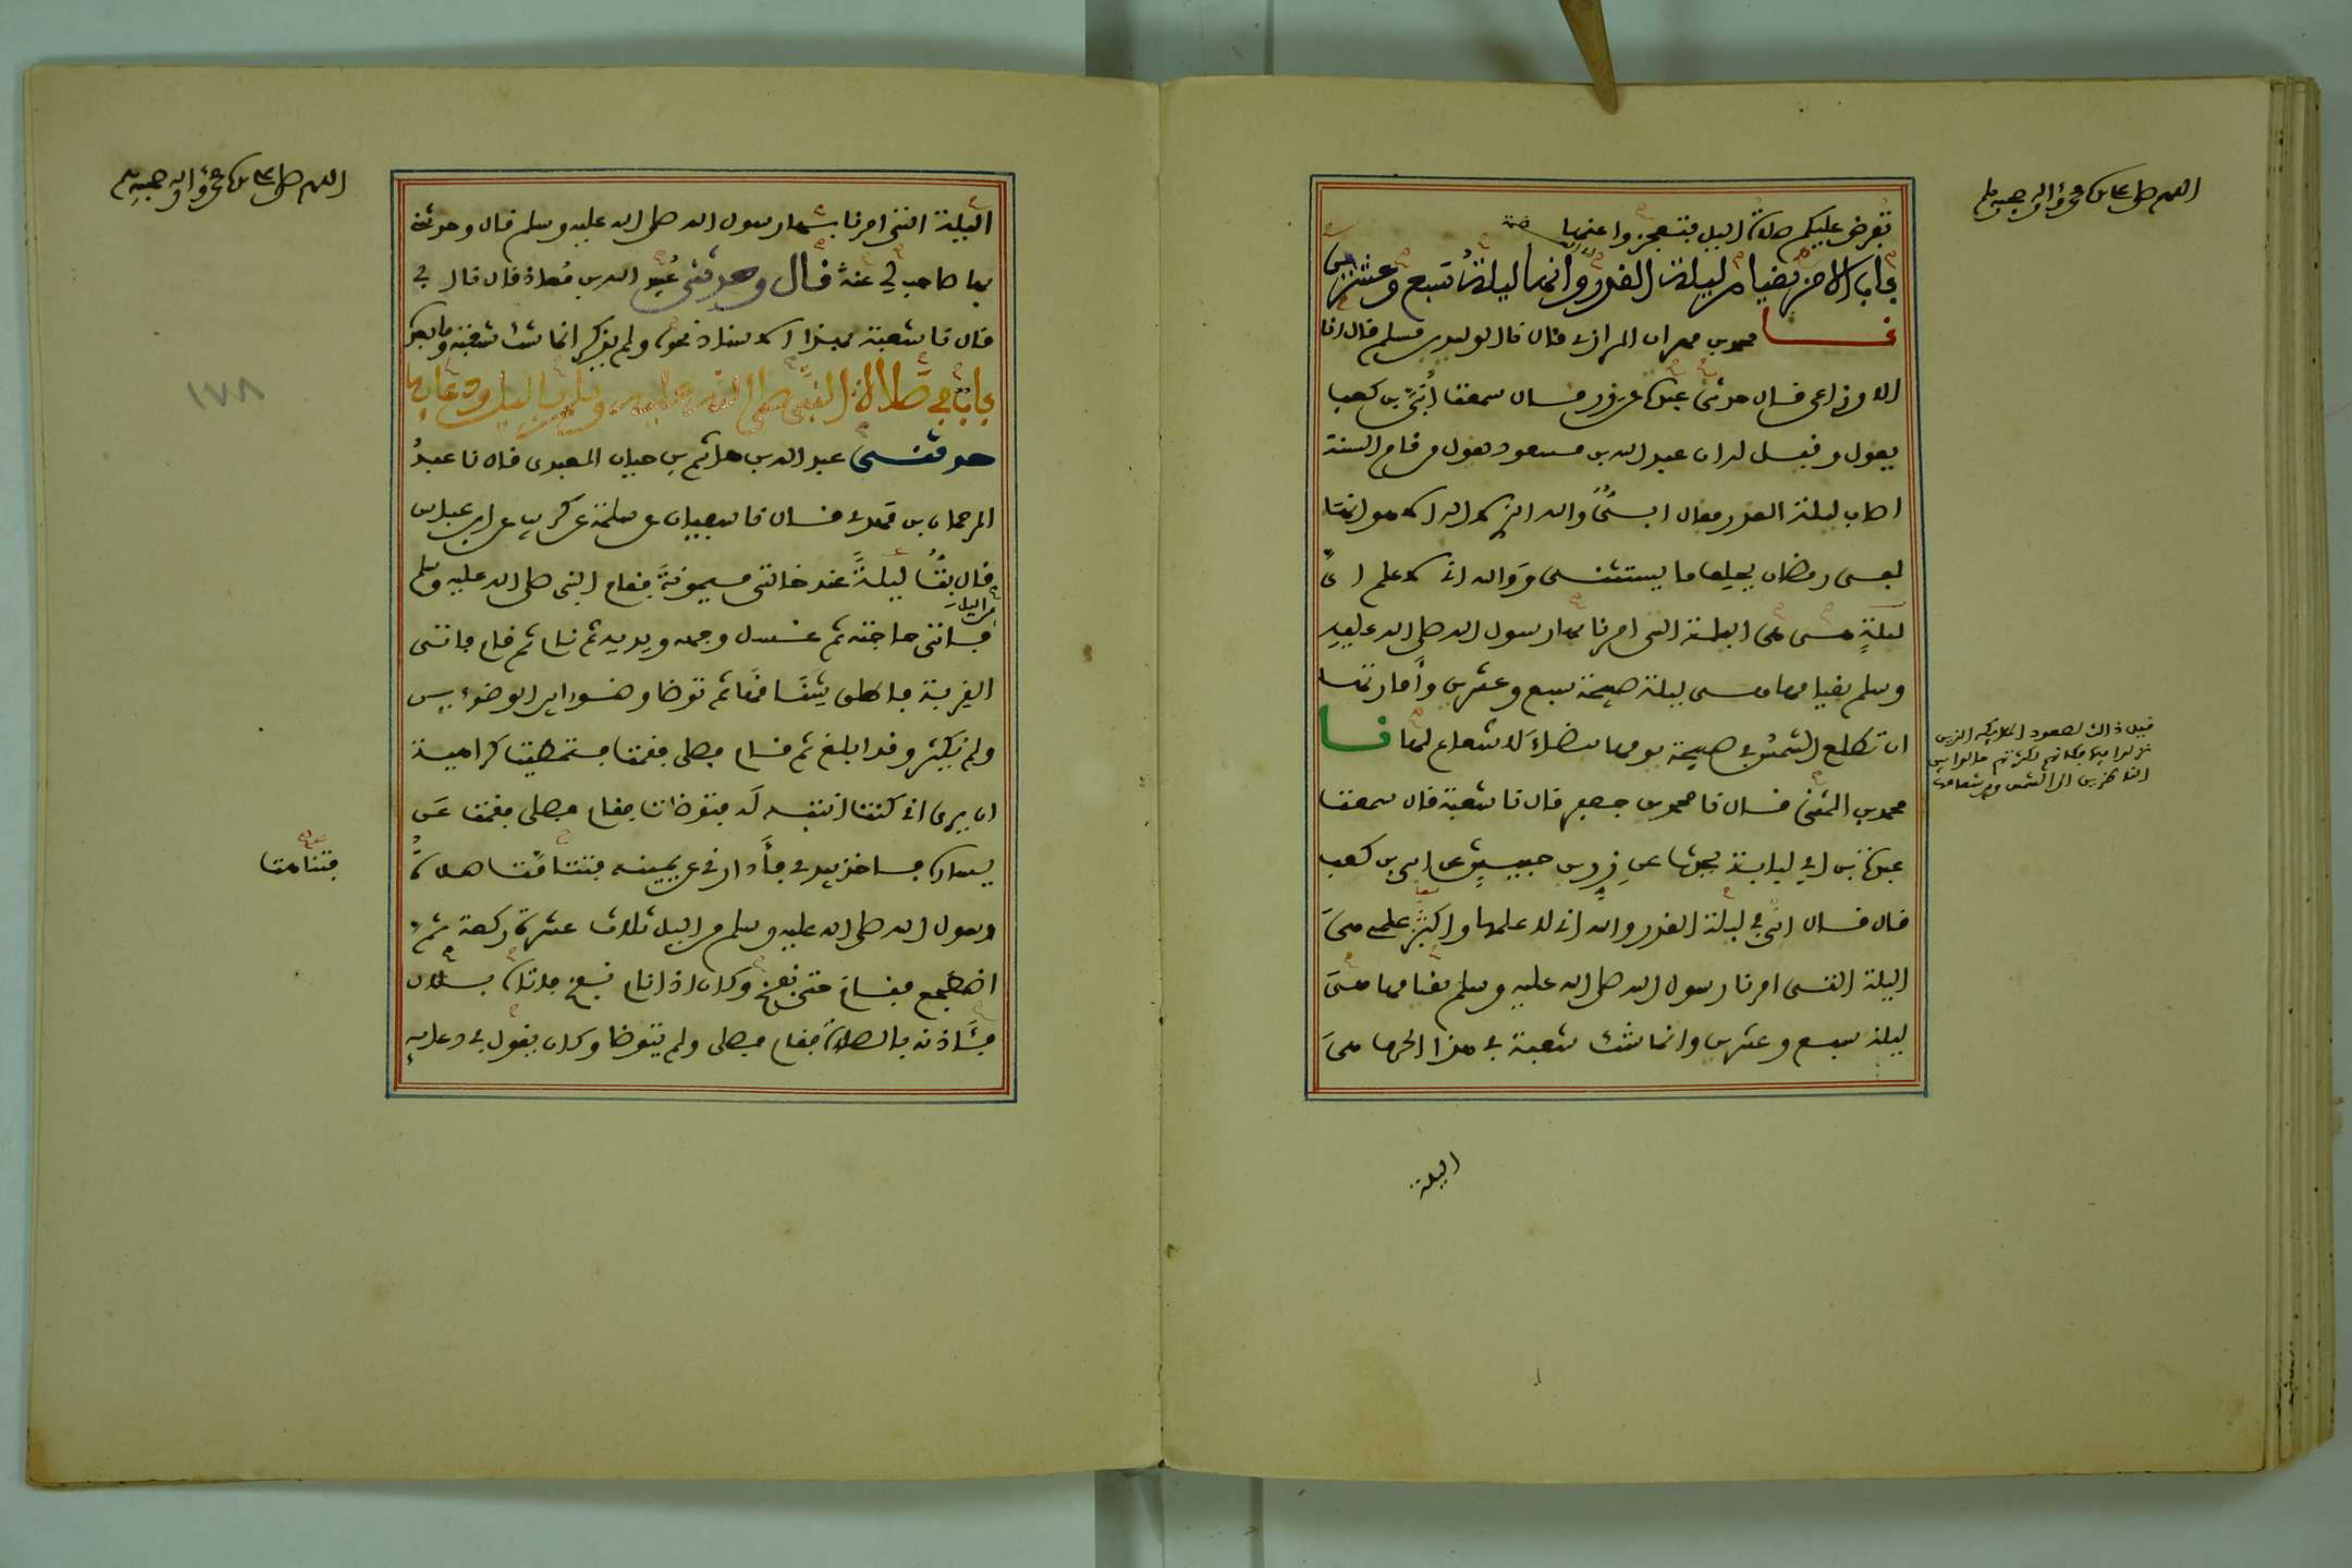 اللهم صل على سيدنا محمد وآله وصحبه وسلم
تفرض عليكم صلاة الليل فتعجزوا عنها
باب الامر بقيام ليلة القدر وانها ليلة سبع وعشرين
نا محمد بن مهران الرازي قال نا الوليد بن مسلم قال انا
الاوزاعي قال حدثني عبدة عن زر قال سمعت أبي بن كعب
يقول وقيل له ان عبد الله بن مسعود يقول من قام السنة
اصاب ليلة القدر فقال ابي والله الذي لا اله الا هو انها
لفي رمضان يحلف ما يستثني ووالله اني لاعلم اي
ليلة هي هي الليلة التي امرنا بها رسول الله صلى الله عليه
وسلم بقيامها هي ليلة صبيحة سبع وعشرين وأمارتها
ان تطلع الشمس في صبيحة يومها بيضاء لا شعاع لها نا
محمد بن المثنى قال نا محمد بن جعفر قال نا شعبة قال سمعت
عبدة بن ابي لبابة يحدث عن زر بن حبيش عن ابي بن كعب
قال قال ابي في ليلة القدر والله اني لاعلمها واكثر علمي هي
الليلة التي امرنا رسول الله صلى الله عليه وسلم بقيامها هي
ليلة سبع وعشرين وانما شك شعبة في هذا الحرف هي
قيل ذالك لصعود الملايكة الذين
نزلوا فيها فكانهم لكثرتهم حالوا بين
الناظرين الى الشمس وبين شعاعها
الليلة
اللهم صل على سيدنا محمد وآله وصحبه وسلم
الليلة التي امرنا بها رسول الله صلى الله عليه وسلم قال وحدثني
بها صاحب لي عنه قال وحدثني عبيد الله بن معاذ قال نا ابي
قال نا شعبة بهذا الاسناد نحوه ولم يذكر انما شك شعبة وما بعده
باب في صلاة النبي صلى الله عليه وسلم بالليل ودعائه
حدثني عبد الله بن هاشم بن حيان العبدي قال نا عبد
الرحمان بن مهدي قال نا سفيان عن سلمة عن كريب عن ابن عباس
قال بت ليلة عند خالتي ميمونة فقام النبي صلى الله عليه وسلم
من الليل
فاتى حاجته ثم غسل وجهه ويديه ثم نام ثم قام فاتى
القربة فاطلق شناقها ثم توضا وضوءا بين الوضوءين
ولم يكثر وقد ابلغ ثم قام فصلى فقمت فتمطيت كراهية
ان يرى اني كنت انتبه له فتوضات فقام فصلى فقمت عن
يساره فاخذ بيدي فأدارني عن يمينه فتتامت صلاة
رسول الله صلى الله عليه وسلم من الليل ثلاث عشرة ركعة ثم
اضطجع فنام حتى نفخ وكان اذا نام نفخ فاتاه بلال
فآذنه بالصلاة فقام فصلى ولم يتوضا وكان يقول في دعائه
فتتامت
١٧٨